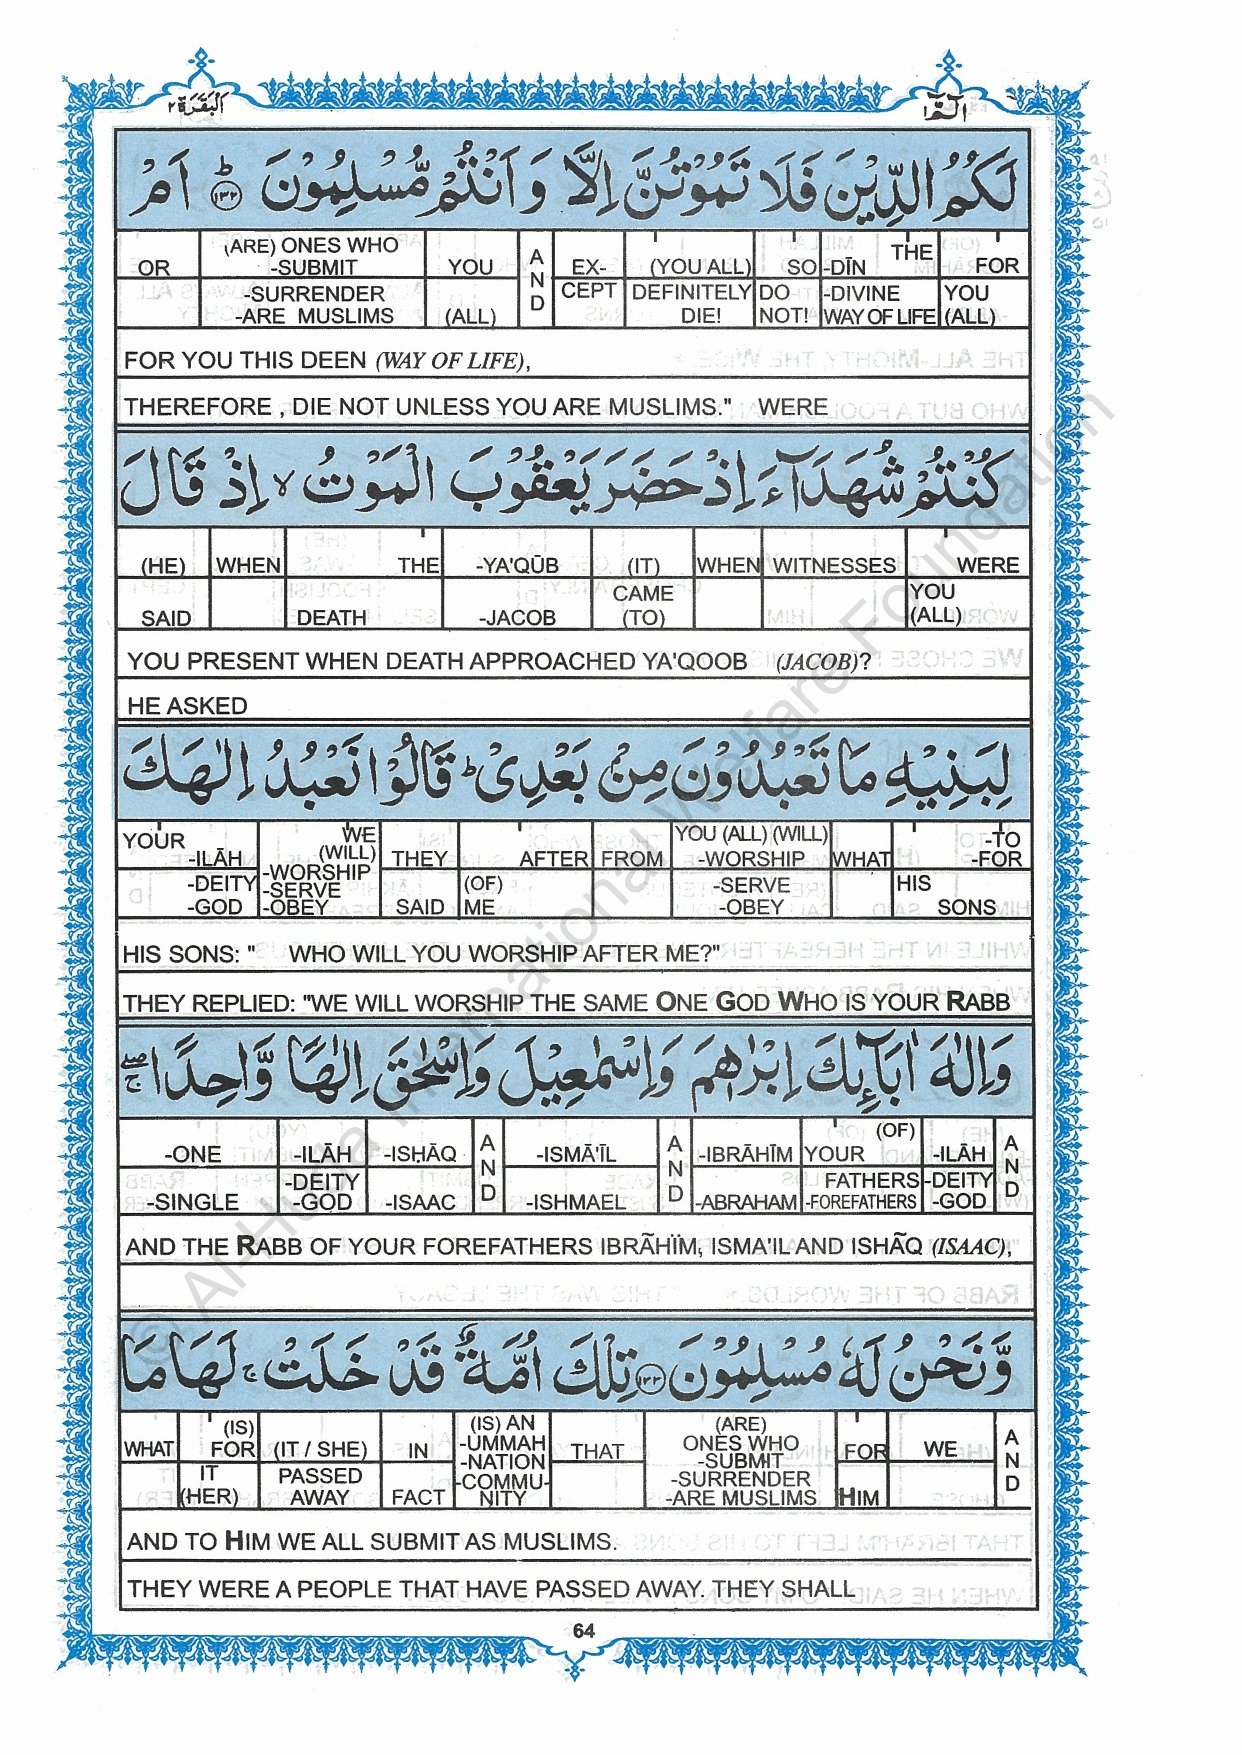 اَلْبَقَرَة ٢
الٓمّٓ ١
لَكُمُ الدِّيْنَ فَلَا تَمُوْتُنَّ اِلَّا وَ اَنْتُمْ مُّسْلِمُوْنَ ؕ ﴿١٣٢﴾ اَمْ
OR (ARE) ONES WHO -SUBMIT YOU AND EX- (YOU ALL) SO -DĪN THE FOR
-SURRENDER -ARE MUSLIMS (ALL) CEPT DEFINITELY DIE! DO NOT! -DIVINE WAY OF LIFE YOU (ALL)
FOR YOU THIS DEEN (WAY OF LIFE),
THEREFORE , DIE NOT UNLESS YOU ARE MUSLIMS." WERE
كُنْتُمْ شُهَدَآءَ اِذْ حَضَرَ يَعْقُوْبَ الْمَوْتُ ۙ اِذْ قَالَ
(HE) WHEN THE -YA'QŪB (IT) WHEN WITNESSES WERE
SAID DEATH -JACOB CAME (TO) YOU (ALL)
YOU PRESENT WHEN DEATH APPROACHED YA'QOOB (JACOB)?
HE ASKED
لِبَنِيْهِ مَا تَعْبُدُوْنَ مِنْۢ بَعْدِىْ ؕ قَالُوْا نَعْبُدُ اِلٰهَكَ
YOUR -ILĀH WE (WILL) -WORSHIP THEY AFTER FROM YOU (ALL) (WILL) -WORSHIP WHAT -TO -FOR
-DEITY -GOD -SERVE -OBEY SAID (OF) ME -SERVE -OBEY HIS SONS
HIS SONS: " WHO WILL YOU WORSHIP AFTER ME?"
THEY REPLIED: "WE WILL WORSHIP THE SAME ONE GOD WHO IS YOUR RABB
وَاِلٰهَ اٰبَآئِكَ اِبْرٰهٖمَ وَاِسْمٰعِيْلَ وَاِسْحٰقَ اِلٰهًا وَّاحِدًا ۖۚ
-ONE -ILĀH -ISḤĀQ AND -ISMĀ'ĪL AND -IBRĀHĪM YOUR (OF) -ILĀH AND
-SINGLE -DEITY -GOD -ISAAC -ISHMAEL -ABRAHAM FATHERS -FOREFATHERS -DEITY -GOD
AND THE RABB OF YOUR FOREFATHERS IBRÃHÏM, ISMA'IL AND ISHÃQ (ISAAC),
وَّنَحْنُ لَهٗ مُسْلِمُوْنَ ﴿١٣٣﴾ تِلْكَ اُمَّةٌ قَدْ خَلَتْ ۚ لَهَا مَا
WHAT (IS) FOR (IT / SHE) IN (IS) AN -UMMAH -NATION THAT (ARE) ONES WHO -SUBMIT FOR WE AND
IT (HER) PASSED AWAY FACT -COMMU- NITY -SURRENDER -ARE MUSLIMS HIM
AND TO HIM WE ALL SUBMIT AS MUSLIMS.
THEY WERE A PEOPLE THAT HAVE PASSED AWAY. THEY SHALL
64
© Al-Huda International Welfare Foundation